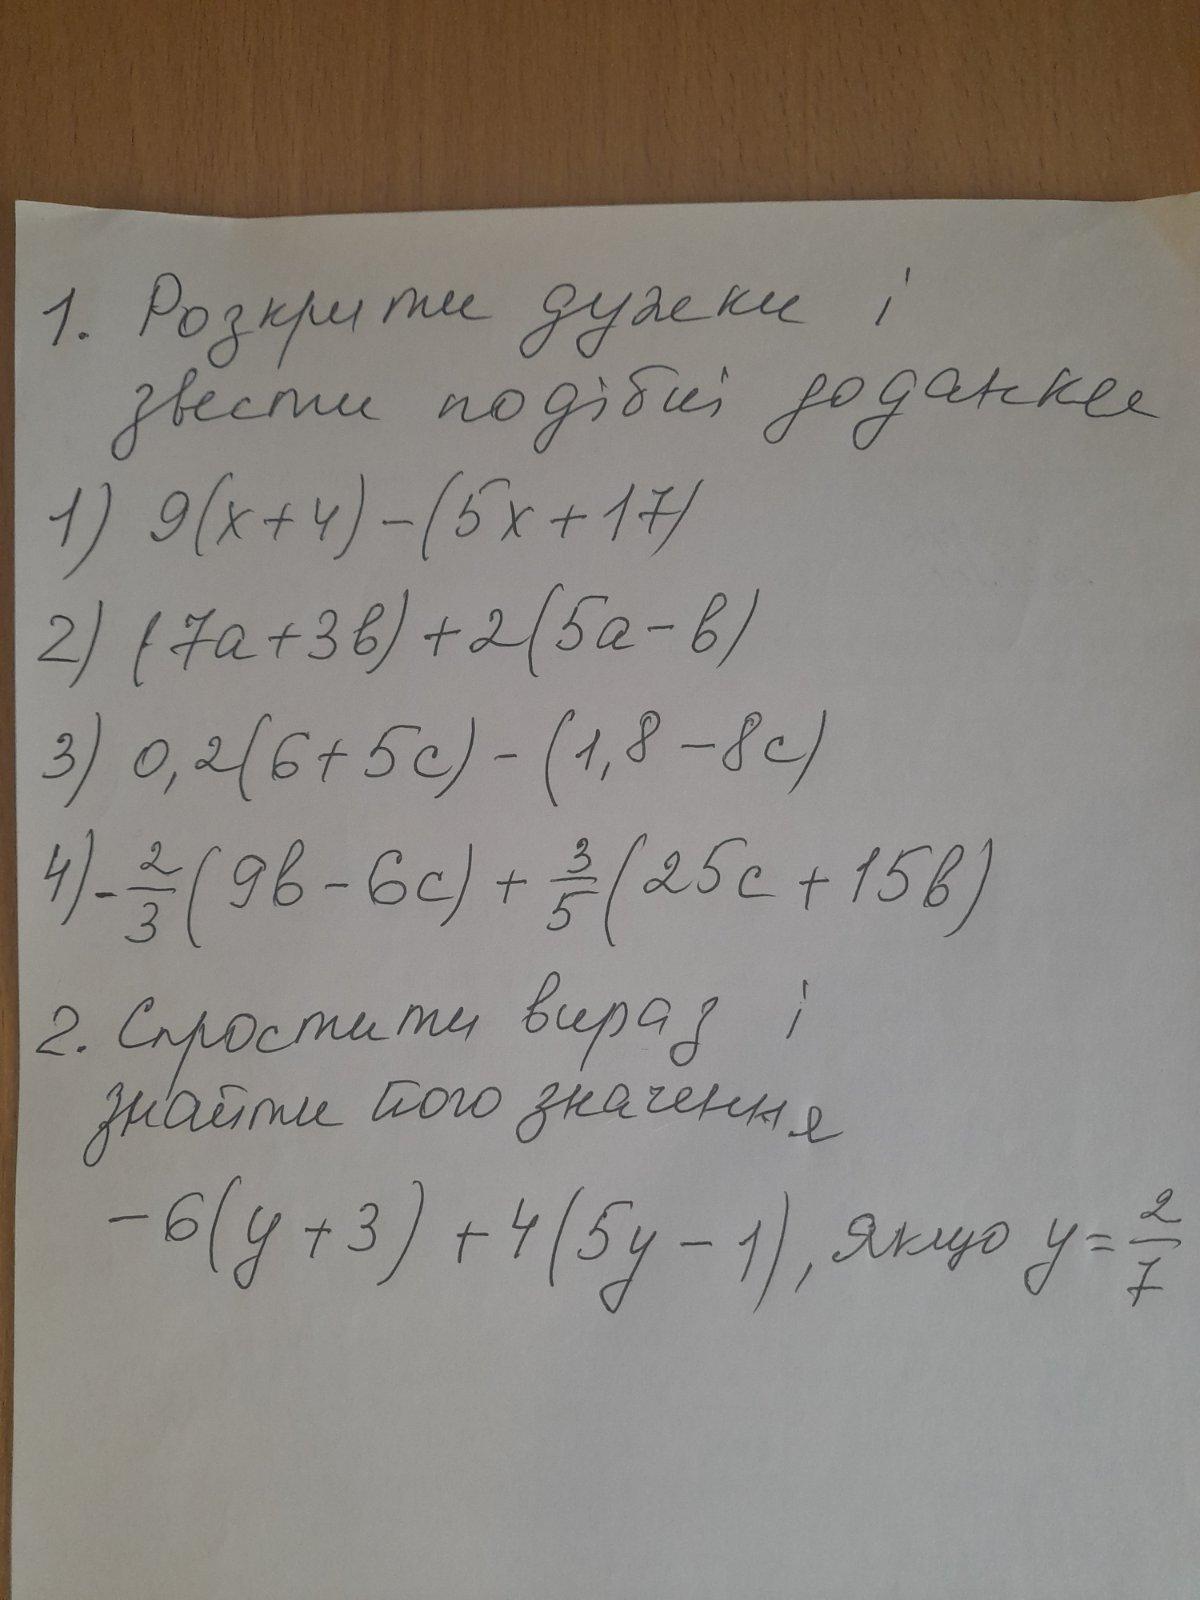 1. Розкрити дужки і
звести подібні доданки
1) 9(x+4)-(5x+17)
2) (7a+3b)+2(5a-b)
3) 0,2(6+5c)-(1,8-8c)
4) -2/3(9b-6c)+3/5(25c+15b)
2. Спростити вираз і
знайти його значення
-6(y+3)+4(5y-1), якщо y=2/7